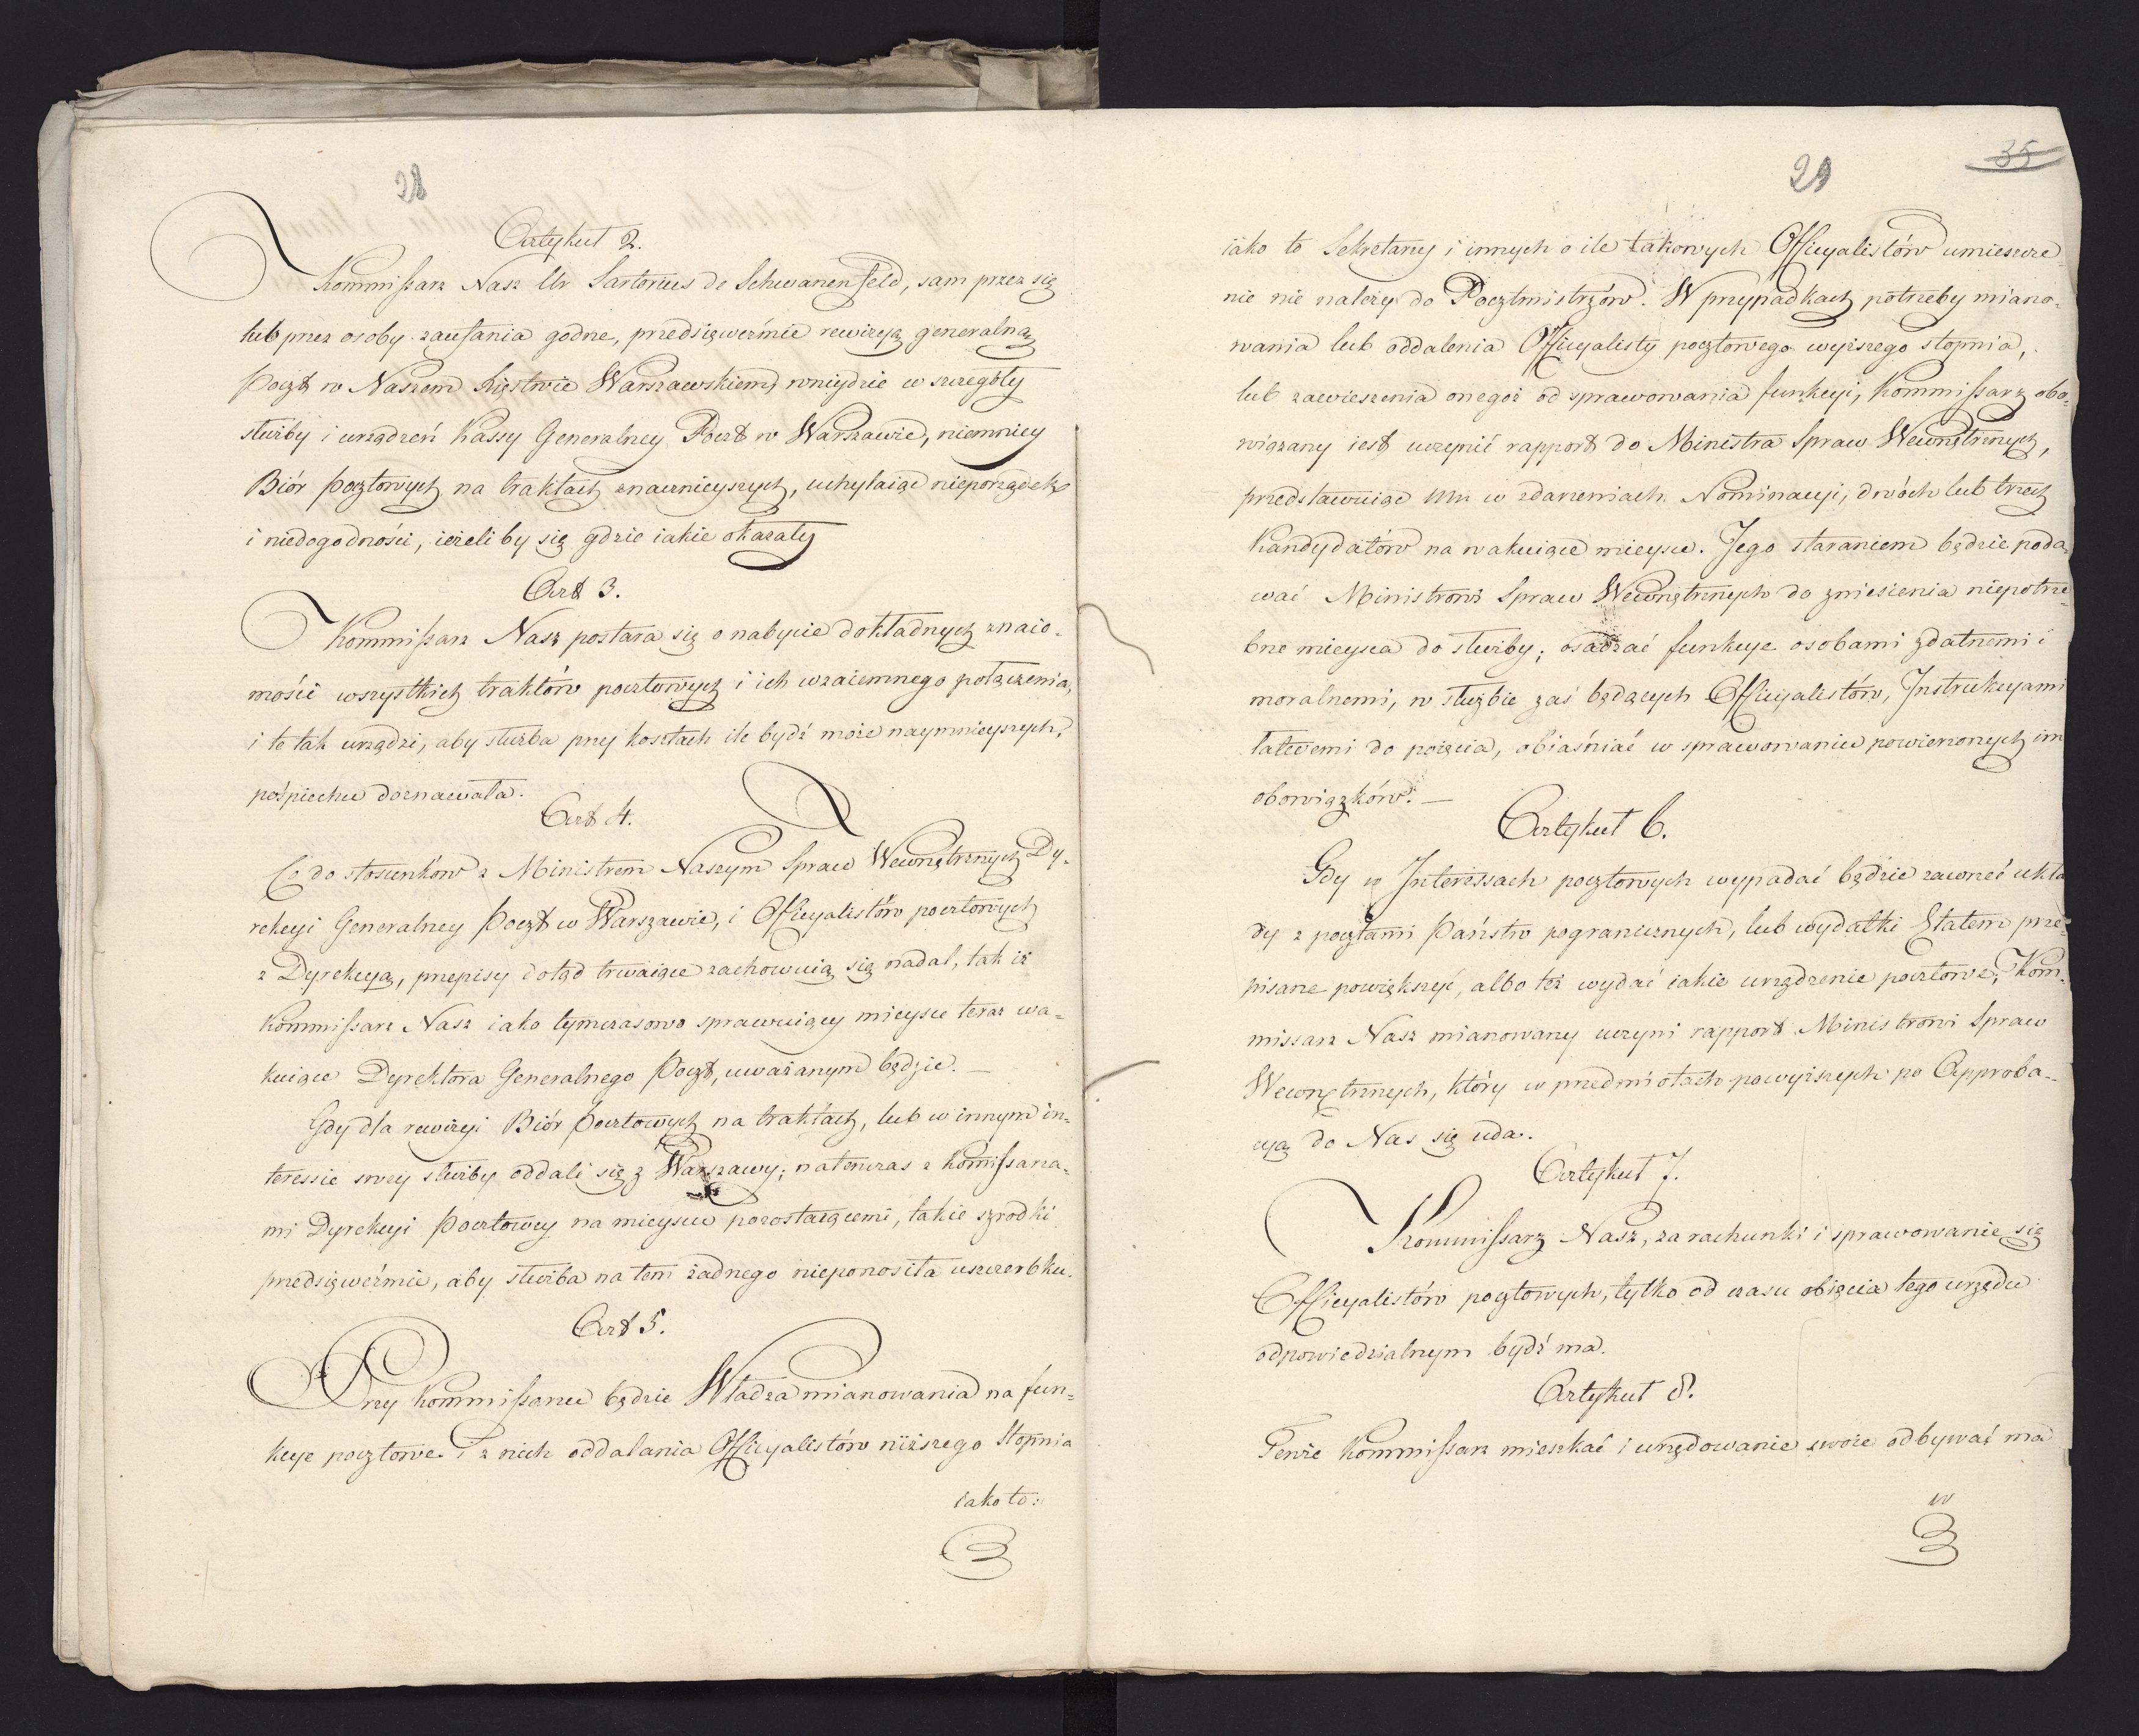 28
Artykuł 2.
Kommissarz Nasz Ur Sartorius de Schwanenfeld, sam przez się
lub przez osoby zaufania godne, przedsięweźmie rewizyą generalną
Poczt w Naszem Xięstwie Warszawskiem, wniydzie w szczegóły
służby i urządzeń Kassy Generalney Poczt w Warszawie, niemniey
Biór pocztowych na traktach znacznieyszych, uchylaiąc nieporządek
i niedogodności, ieżeli by się gdzie iakie okazały
Art 3.
Kommissarz Nasz postara się o nabycie dokładnych znaio-
mości wszystkich traktów pocztowych i ich wzaiemnego połączenia,
i to tak urządzi, aby służba przy kosztach ile bydź może naymnieyszych,
pośpiechu doznawała.
Art 4.
Co do stosunków z Ministrem Naszym Spraw Wewnętrznych Dy-
rekcyi Generalney Poczt w Warszawie, i Officyalistów pocztowych
z Dyrekcyą, przepisy dotąd trwaiące zachowuią się nadal, tak iż
Kommissarz Nasz iako tymczasowo sprawuiący mieysce teraz wa-
kuiące Dyrektora Generalnego Poczt, uważanym będzie. —
Gdy dla rewizyi Biór Pocztowych na traktach, lub w innym in-
teressie swey służby oddali się z Warszawy; natenczas z Komissarza-
mi Dyrekcyi Pocztowey na mieyscu pozostaiącemi, takie szrodki
przedsięweźmie, aby służba na tem żadnego nieponosiła uszczerbku.
Art 5.
Przy Kommissarzu będzie Władza mianowania na fun-
kcye pocztowe i z nich oddalania Officyalistów niższego stopnia
iako to:
29
35
iako to Sekretarzy i innych o ile takowych Officyalistów umieszcze-
nie nie należy do Pocztmistrzów. W przypadkach potrzeby miano-
wania lub oddalenia Officyalisty pocztowego wyższego stopnia,
lub zawieszenia onegoż od sprawowania funkcyi, Kommissarz obo-
wiązany iest uczynić rapport do Ministra Spraw Wewnętrznych,
przedstawuiąc mu w zdarzeniach Nominacyi, dwóch lub trzech
Kandydatów na wakuiące mieysce. Jego staraniem będzie poda-
wać Ministrowi Spraw Wewnętrznych do zniesienia niepotrze-
bne mieysca do służby; osadzać funkcye osobami zdatnemi i
moralnemi, w służbie zaś będących Officyalistów, Instrukcyami
łatwemi do poięcia, obiaśniać w sprawowaniu powierzonych im
obowiązków. —
Artykuł 6.
Gdy w Interessach pocztowych wypadać będzie zawrzeć ukła-
dy z pocztami Państw pogranicznych, lub wydatki Etatem prze-
pisane powiększyć, albo też wydać iakie urządzenie pocztowe; Kom-
missarz Nasz mianowany uczyni rapport Ministrowi Spraw
Wewnętrznych, który w przedmiotach powyższych po Approba-
cyą do Nas się uda.
Artykuł 7.
Kommissarz Nasz, za rachunki i sprawowanie się
Officyalistów pocztowych, tylko od czasu obięcia tego urzędu
odpowiedzialnym bydź ma.
Artykuł 8.
Tenże Kommissarz mieszkać i urzędowanie swoie odbywać ma
w